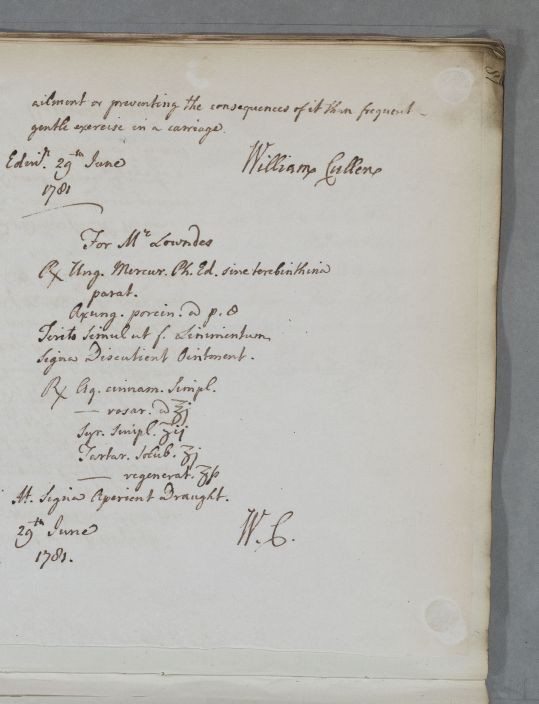 ailment or preventing the consequences of it than frequent
gentle exercise in a carriage.
Edinr. 29th June William Cullen
1781
For Mr Lowndes
℞ Ung. Mercur. Ph. Ed. sine terebinthina
parat.
Axung. porcin. a p. 
Terito Simul ut f. Linimentum
Signa Discutient Ointment.
℞ Aq. cinnam. Simpl.
— rosar. a ℥j
Syr. Simpl. ʒij
Tartar. Solub. ʒj
— regenerat. ʒß
M. Signa Aperient Draught.
29th June W. C.
1781.